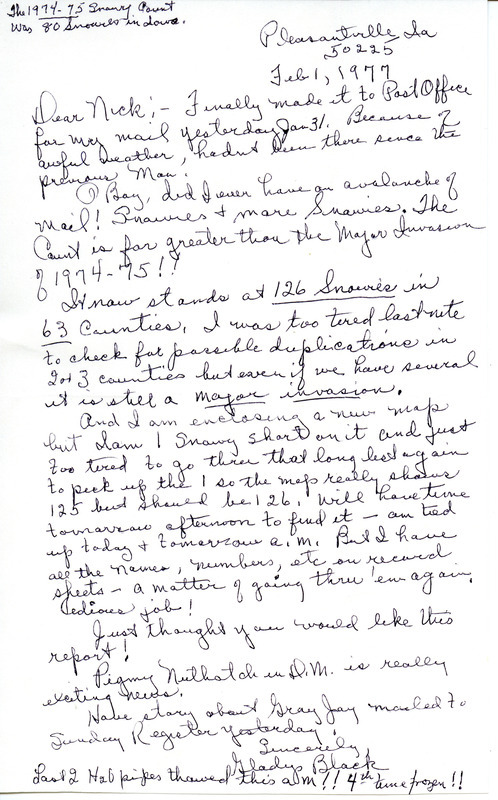 The 1974-75 Snowy Count
Was 80 Snowies in Iowa.
Pleasantville, Ia
50225
Feb 1, 1977
Dear Nick:- Finally made it to Post Office
for my mail yesterday, Jan 31. Because of
awful weather, hadn't been there since the
previous Mon.
Boy, did I ever have an avalanche of
mail! Snowies & more Snowies. The
Count is far greater than the Major Invasion
of 1974-75!!
It now stands at 126 Snowies in
63 Counties. I was too tired last nite
to check for possible duplications in
2 or 3 counties but even if we have several
it is still a major invasion.
And I am enclosing a new map
but I am 1 Snowy short on it and just
too tired to go thru that long list again
to pick up the 1 so the map really shows
125 but should be 126. Will have time
tomorrow afternoon to find it - am tied
up today & tomorrow a.m. But I have
all the names, numbers, etc on record
sheets - a matter of going thru 'em again.
Tedious job!
Just thought you would like this
report!
Pigmy Nuthatch in D.M. is really
exciting news.
Have story about Gray Jay mailed to
Sunday Register yesterday!
Sincerely,
Gladys Black
Last 2 pipes thawed this a.m!! 4th time frozen!!